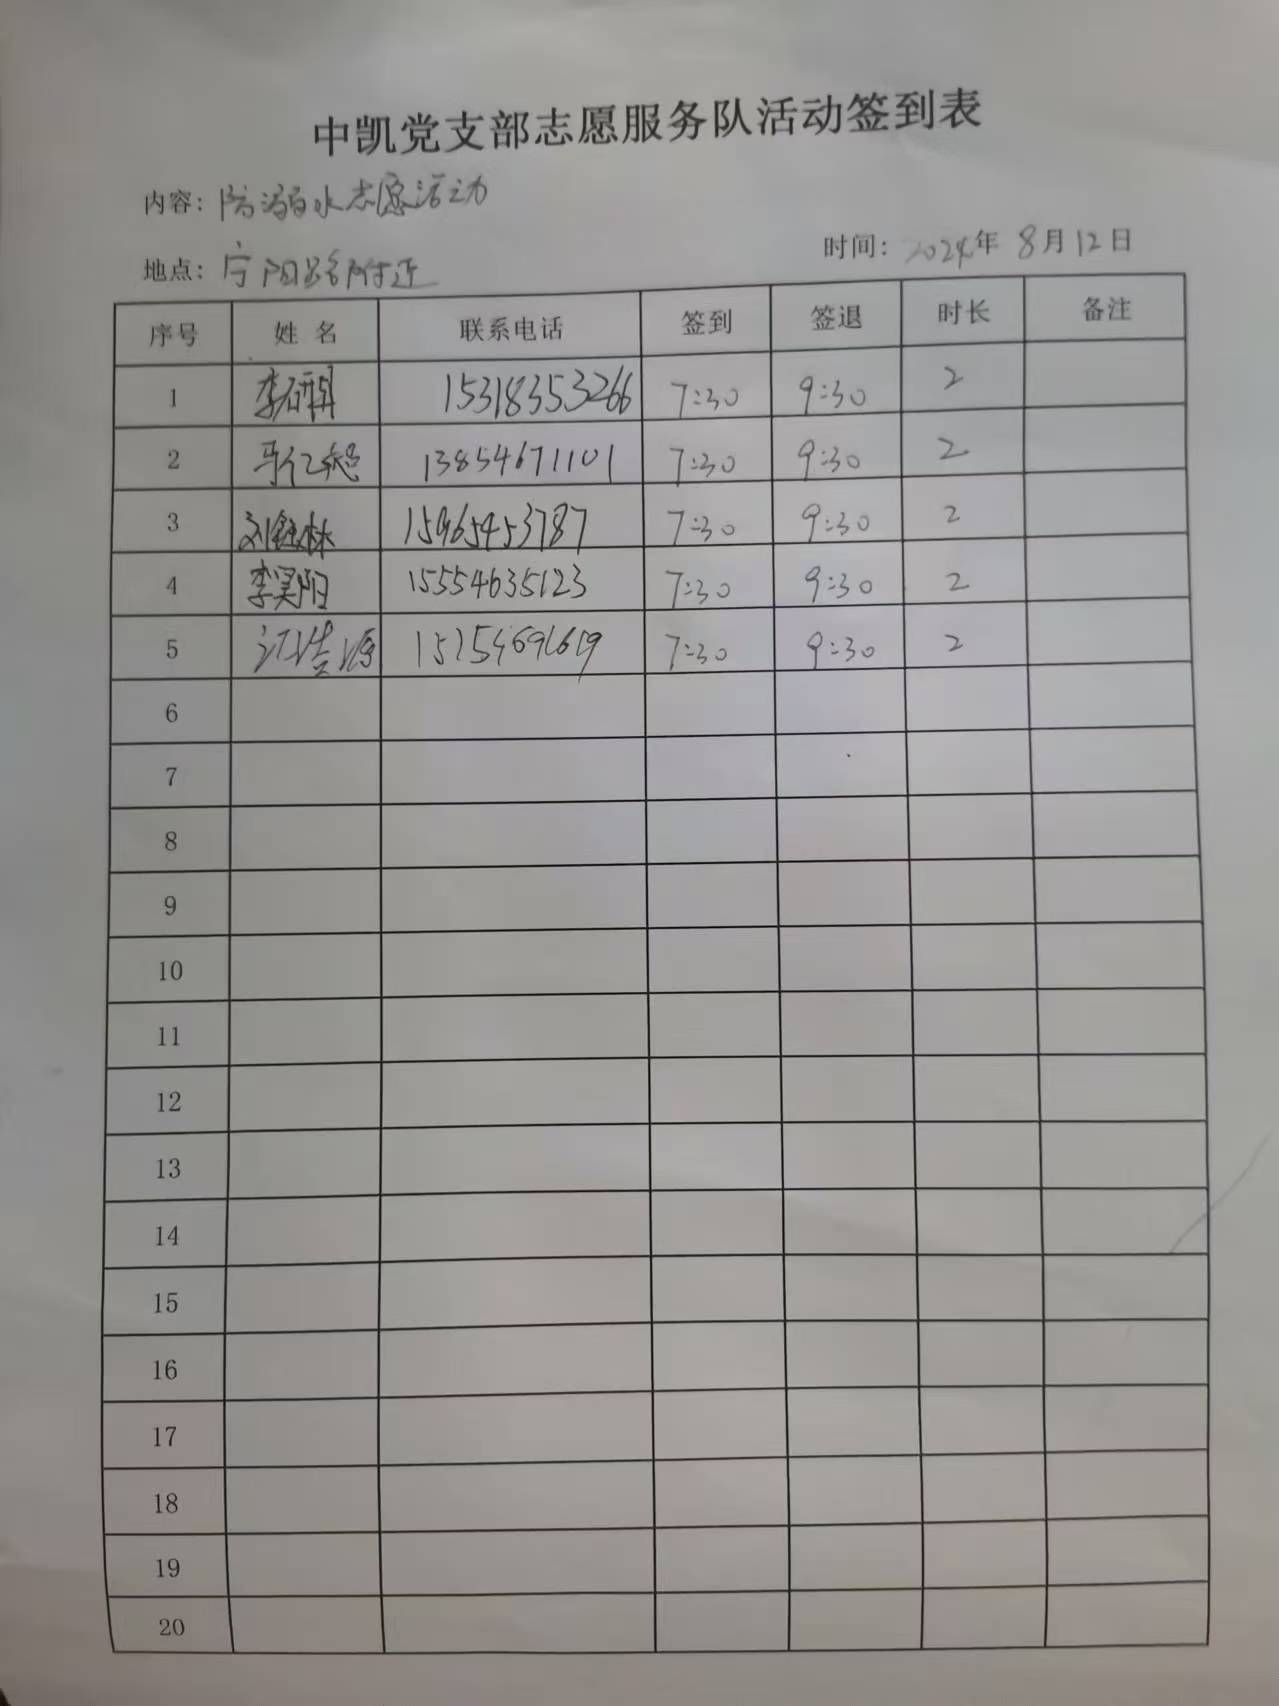 中凯党支部志愿服务队活动签到表
内容：防溺水志愿活动
时间：2024年 8月12日
地点：宁阳路附近
序号 姓名 联系电话 签到 签退 时长 备注
1 李 15318353266 7:30 9:30 2
2 13854671101 7:30 9:30 2
3 刘钰林 15965453787 7:30 9:30 2
4 李昊阳 15554635123 7:30 9:30 2
5 江浩源 7:30 9:30 2
6
7
8
9
10
11
12
13
14
15
16
17
18
19
20